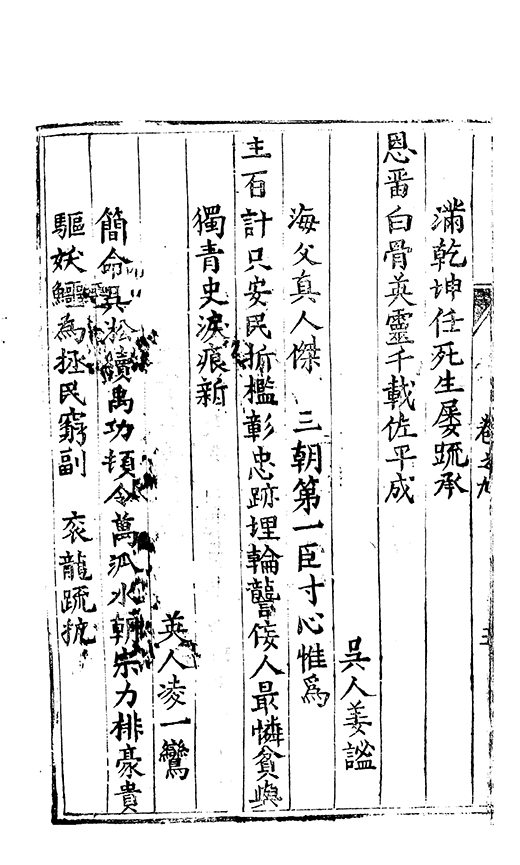 卷之九
滿乾坤任死生屢䟽承
恩畨白骨英靈千載佐平成
吳人姜謐
海父真人傑 三朝第一臣寸心惟爲
主百計只安民折檻彰忠跡埋輪讋佞人最憐貧與
獨青史淚痕新
英人凌一鸞
簡命 淞續禹功頓令萬派水朝宗力排豪貴
驅妖鱷為拯民窮副 衮龍䟽抗